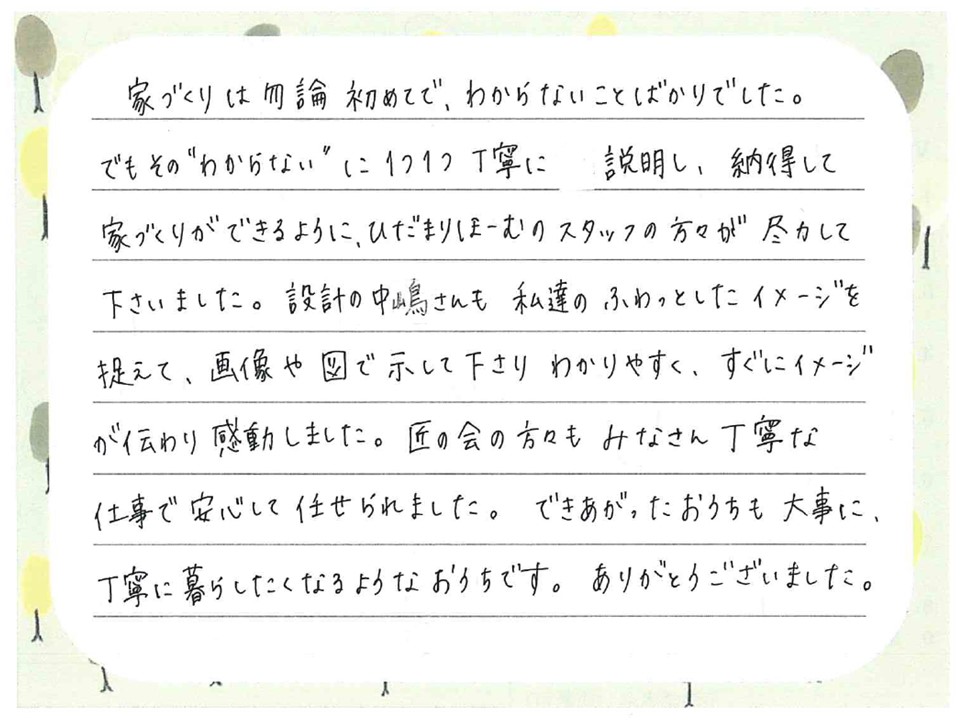 家づくりは勿論 初めてで、わからないことばかりでした。
でもその"わからない"に1つ1つ丁寧に 説明し、納得して
家づくりができるように、ひだまりほーむのスタッフの方々が 尽力して
下さいました。設計の中嶋さんも 私達の ふわっとしたイメージを
捉えて、画像や図で示して下さり わかりやすく、すぐにイメージ
が伝わり感動しました。匠の会の方々も みなさん丁寧な
仕事で安心して任せられました。 できあがったおうちも大事に、
丁寧に暮らしたくなるようなおうちです。 ありがとうございました。